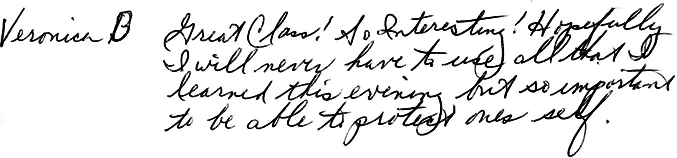 Veronica B Great Class! So Interesting! Hopefully
I will never have to use all that I
learned this evening but so important
to be able to protect ones self.